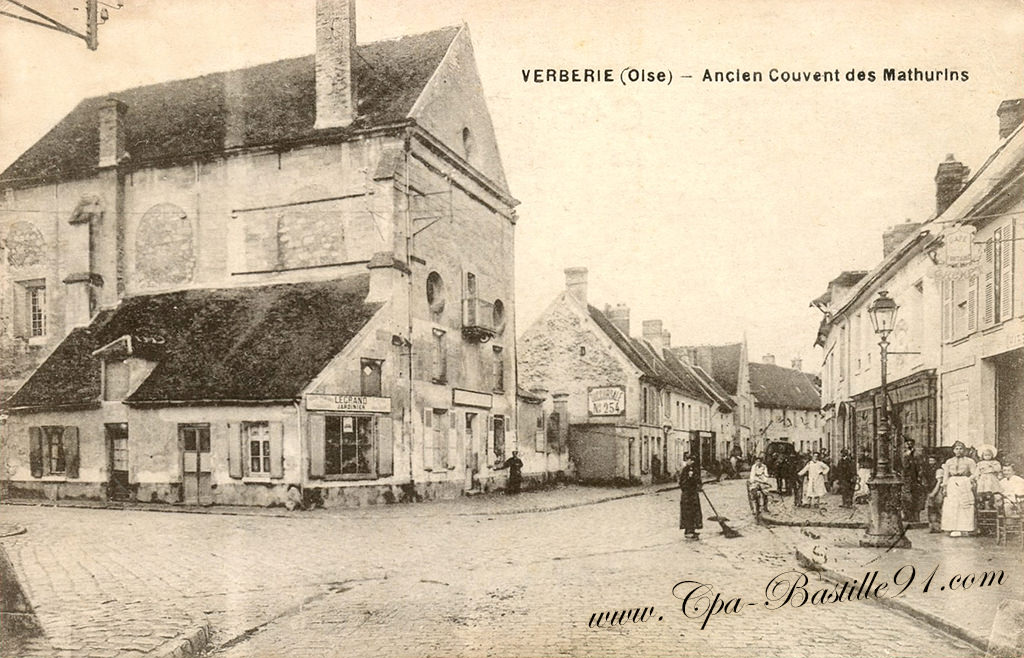 VERBERIE (Oise) — Ancien Couvent des Mathurins
CAFÉ
LEGRAND
JARDINIER
SUCCURSALE
No 254
www. Cpa-Bastille91.com